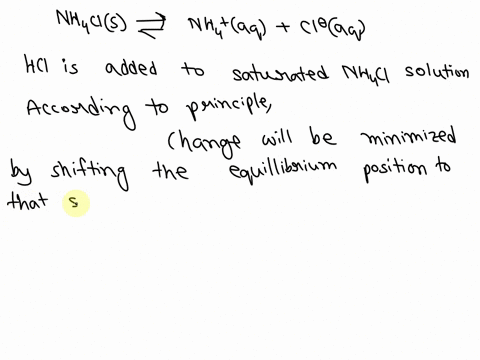 NH₄Cl(s) ⇌ NH₄⁺(aq) + Cl⊖(aq)
HCl is added to saturated NH₄Cl solution
According to principle,
Change will be minimized
by shifting the equillibrium position to
that s